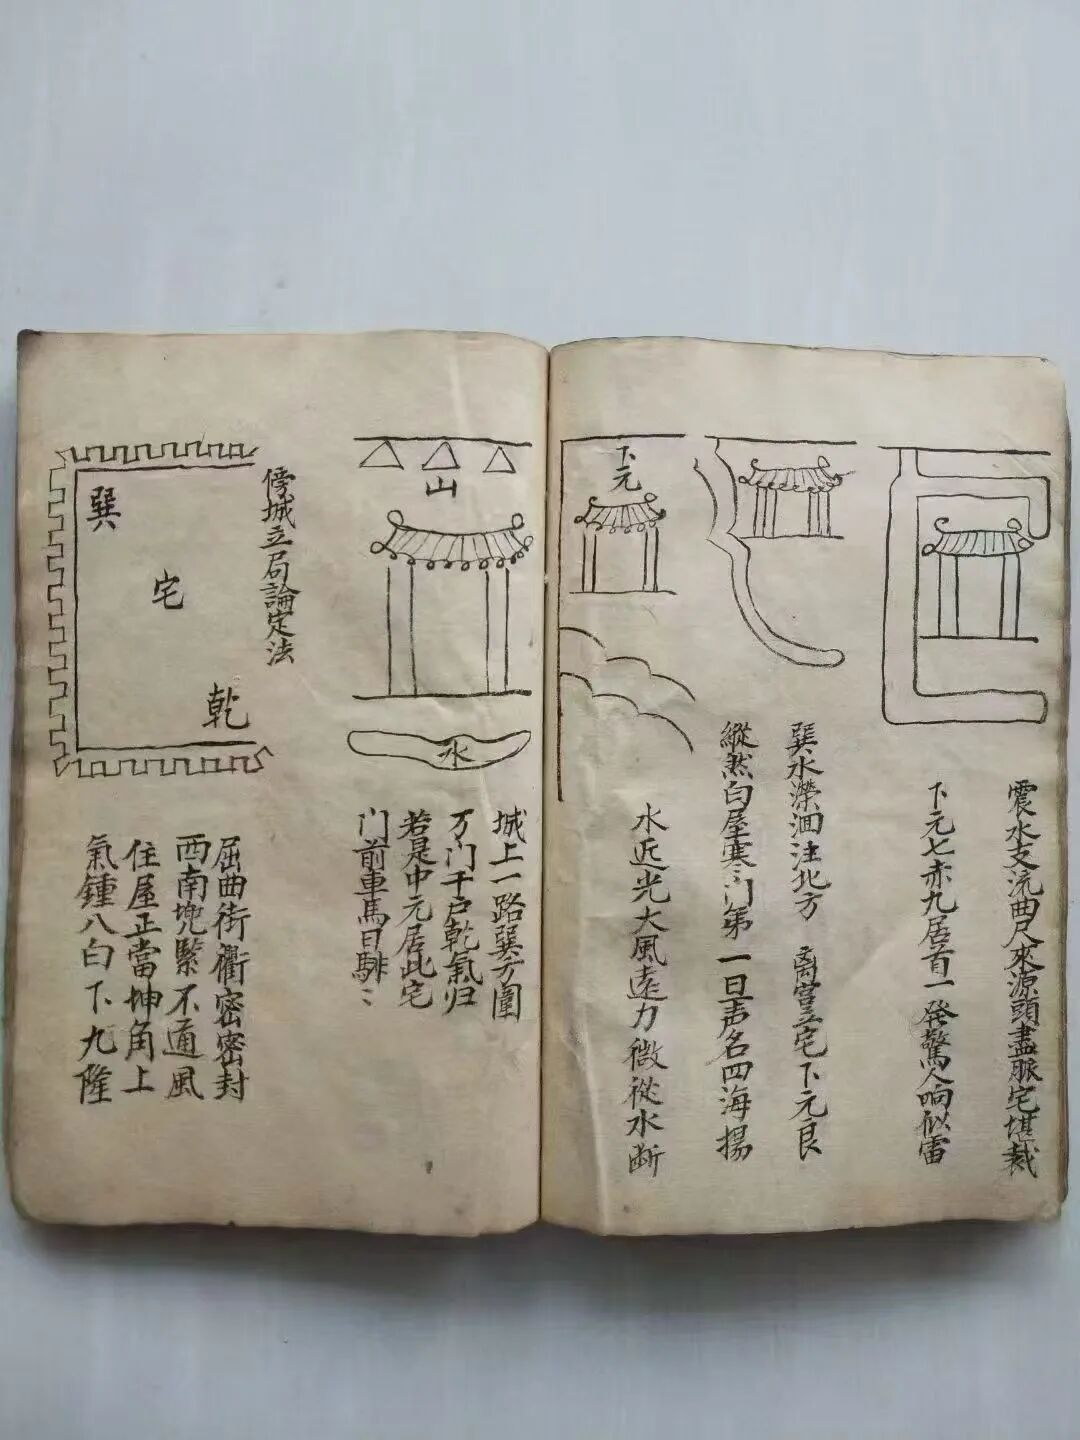 震水支流曲尺來源頭盡脈宅堪裁
下元七赤九居首一發驚人响似雷
巽水瀠洄注北方 离宮立宅下元良
縱然白屋寒门第 一旦声名四海揚
下元
水近光大風遠力微從水断
山
水
城上一路巽方圍
万门千戶乾氣归
若是中元居此宅
门前車馬日騑〻
傍城立局論定法
巽
宅
乾
屈曲街衢密密封
西南兠緊不通風
住屋正當坤角上
氣鍾八白下九隆